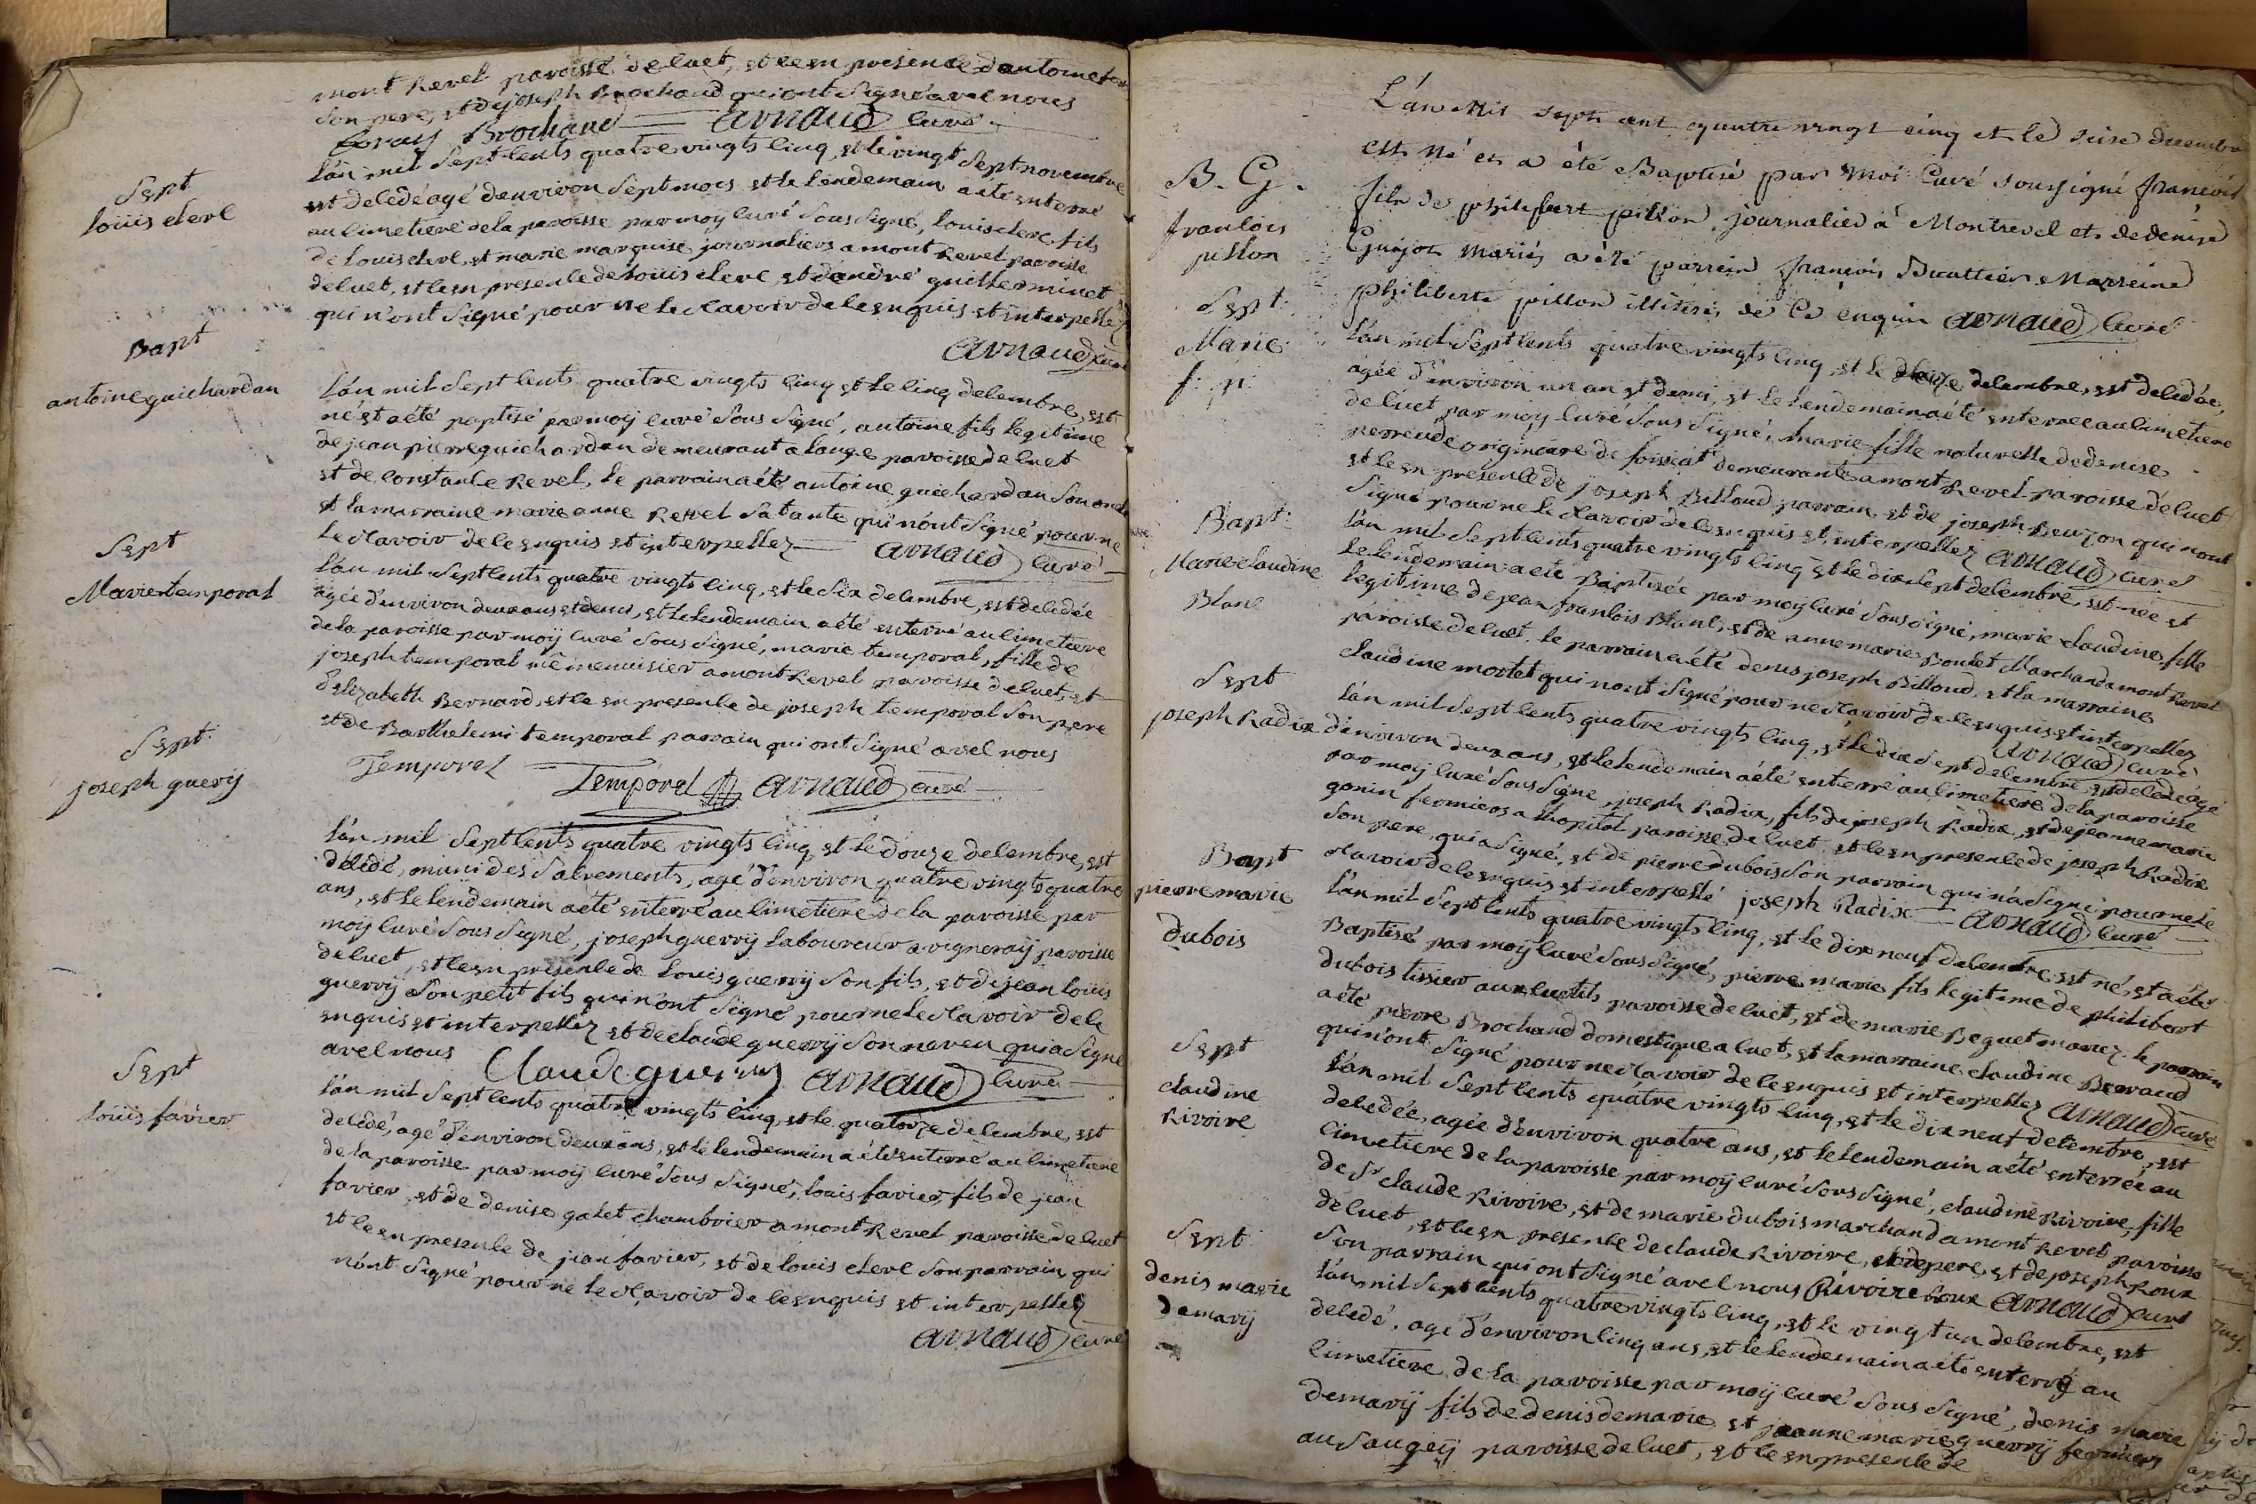 mont Revel paroisse de cuet, et ce en presence d'antoine
son pere, et de joseph Brochaud qui ont signé avec nous
Brochaud arnaud curé
Sept
loüis clerc
L'án mil sept cents quatre vingts cinq, et le vingt sept novembre
est decedé agé d'environ sept mois et le lendemain a été enterré
au cimetiere de la paroisse par moy curé sous signé, louis clerc fils
de louis clerc, et marie marquise journaliers a mont Revel paroisse
de cuet, et ce en presence de louis clerc, et d'andré guillerminet
qui n'ont signé pour ne le sçavoir de ce enquis et interpellez
arnaud curé
Bapt
antoine guichardan
L'án mil sept cents quatre vingts cinq et le cinq decembre, est
né et a été baptisé par moy curé sous signé, antoine fils legitime
de jean pierre guichardan demeurant a lange paroisse de cuet
et de constance Revel, le parrain a été antoine guichardan son oncle
et la marraine marie anne Revel sa tante qui n'ont signé pour ne
le sçavoir de ce enquis et interpellez arnaud curé
Sept
Marie temporal
L'án mil sept cents quatre vingts cinq, et le six decembre, est decedée
agée d'environ deux ans et demi, et le lendemain a été enterré au cimetiere
de la paroisse par moÿ curé sous signé, marie temporal, fille de
joseph temporal me menuisier a mont Revel paroisse de cuet, et
d'elizabeth Bernard, et ce en presence de joseph temporal son pere
et de Barthelemi temporal parrain qui ont signé avec nous
Temporal Temporal arnaud curé
Sept
joseph guerÿ
L'án mil sept cents quatre vingts cinq et le douze decembre, est
décédé, muni des sacrements, agé d'environ quatre vingts quatre
ans, et le lendemain a été enterré au cimetiere de la paroisse par
moÿ curé sous signé, joseph guerrÿ laboureur a vigneraÿ paroisse
de cuet, et ce en presence de louis guerrÿ son fils, et de jean louis
guerrÿ son petit fils qui n'ont signé pour ne le sçavoir de ce
enquis et interpellez et de claude guerrÿ son neveu qui a signé
avec nous Claude guerry arnaud curé
Sept
loüis favier
L'án mil sept cents quatre vingts cinq, et le quatorze decembre, est
decédé, agé d'environ deux ans, et le lendemain a été enterré au cimetiere
de la paroisse par moÿ curé sous signé, louis favier, fils de jean
favier, et de denise galet chambrier a mont Revel paroisse de cuet
et ce en presence de jean favier, et de louis clerc son parrain, qui
n'ont signé pour ne le sçavoir de ce enquis et interpellez
arnaud curé
B. G.
françois
pillon
L'án mil sept cent quatre vingt cinq et le seize decembre
est né et a été Baptisé par moi Curé soussigné françois
fils de philibert pillon, journalier à Montrevel et de denise
Guÿot mariés a été parrein françois Buattier Marreine
philiberte pillon illiterés de ce enquis arnaud curé
Sept.
Marie
f: n:
L'án mil sept cents quatre vingts cinq, et le decembre, est decedée,
agée d'environ un an et demi, et le lendemain a été enterrée au cimetiere
de cuet par moÿ curé sous signé, marie fille naturelle de denise
perraude originaire de foissiat demeurante a mont Revel paroisse de cuet
et ce en présence de joseph Billoud parrain et de joseph Beujon qui n'ont
signé pour ne le sçavoir de ce enquis et interpellez arnaud curé
Bapt:
Marie claudine
Blanc
L'án mil sept cents quatre vingts cinq et le dix sept decembre, est née et
le lendemain a été Baptisée par moÿ curé sous signé, marie claudine fille
legitime de jean françois Blanc, et de anne marie Boulet Marchand a mont Revel
paroisse de cuet. le parrain a été denis joseph Billoud, et la marraine
claudine mortet qui n'ont signé pour ne sçavoir de ce enquis et interpellez
arnaud curé
Sept
joseph Radix
L'án mil sept cents quatre vingts cinq, et le dix sept decembre, est decedé agé
d'environ deux ans, et le lendemain a été enterré au cimetiere de la paroisse
par moÿ curé sous signé, joseph Radix, fils de joseph Radix, et de jeanne marie
gonin fermiers a l'hopital paroisse de cuet, et ce en presence de joseph Radix
son pere, qui a signé, et de pierre dubois son parrain qui n'a signé pour ne le
sçavoir de ce enquis et interpellé joseph Radix arnaud curé
Bapt
pierre marie
dubois
L'án mil sept cents quatre vingts cinq, et le dix neuf decembre est né, et a été
Baptisé par moÿ curé sous signé, pierre marie fils legitime de philibert
dubois tissier aux cuetits paroisse de cuet, et de marie Beguet mariez. le parrain
a été pierre Brochaud domestique a cuet, et la marraine claudine Berraud
qui n'ont signé pour ne sçavoir de ce enquis et interpellez arnaud curé
Sept
claudine
Rivoire
L'án mil sept cents quatre vingts cinq, et le dix neuf decembre, est
decedée, agée d'environ quatre ans, et le lendemain a été enterrée au
cimetiere de la paroisse par moÿ curé sous signé, claudine Rivoire, fille
de Sr claude Rivoire, et de marie dubois marchand a mont Revel paroisse
de cuet, et ce en presence de claude Rivoire, pere, et de joseph Roux
son parrain qui ont signé avec nous Rivoire Roux arnaud curé
Sept
denis marie
demarÿ
L'án mil sept cents quatre vingts cinq, et le vingt un decembre, est
decédé, agé d'environ cinq ans, et le lendemain a été enterré au
cimetiere de la paroisse par moÿ curé sous signé, denis marie
demarÿ fils de denis demarie et jeanne marie guerrÿ fermiers
au saugeÿ paroisse de cuet, et ce en presence de